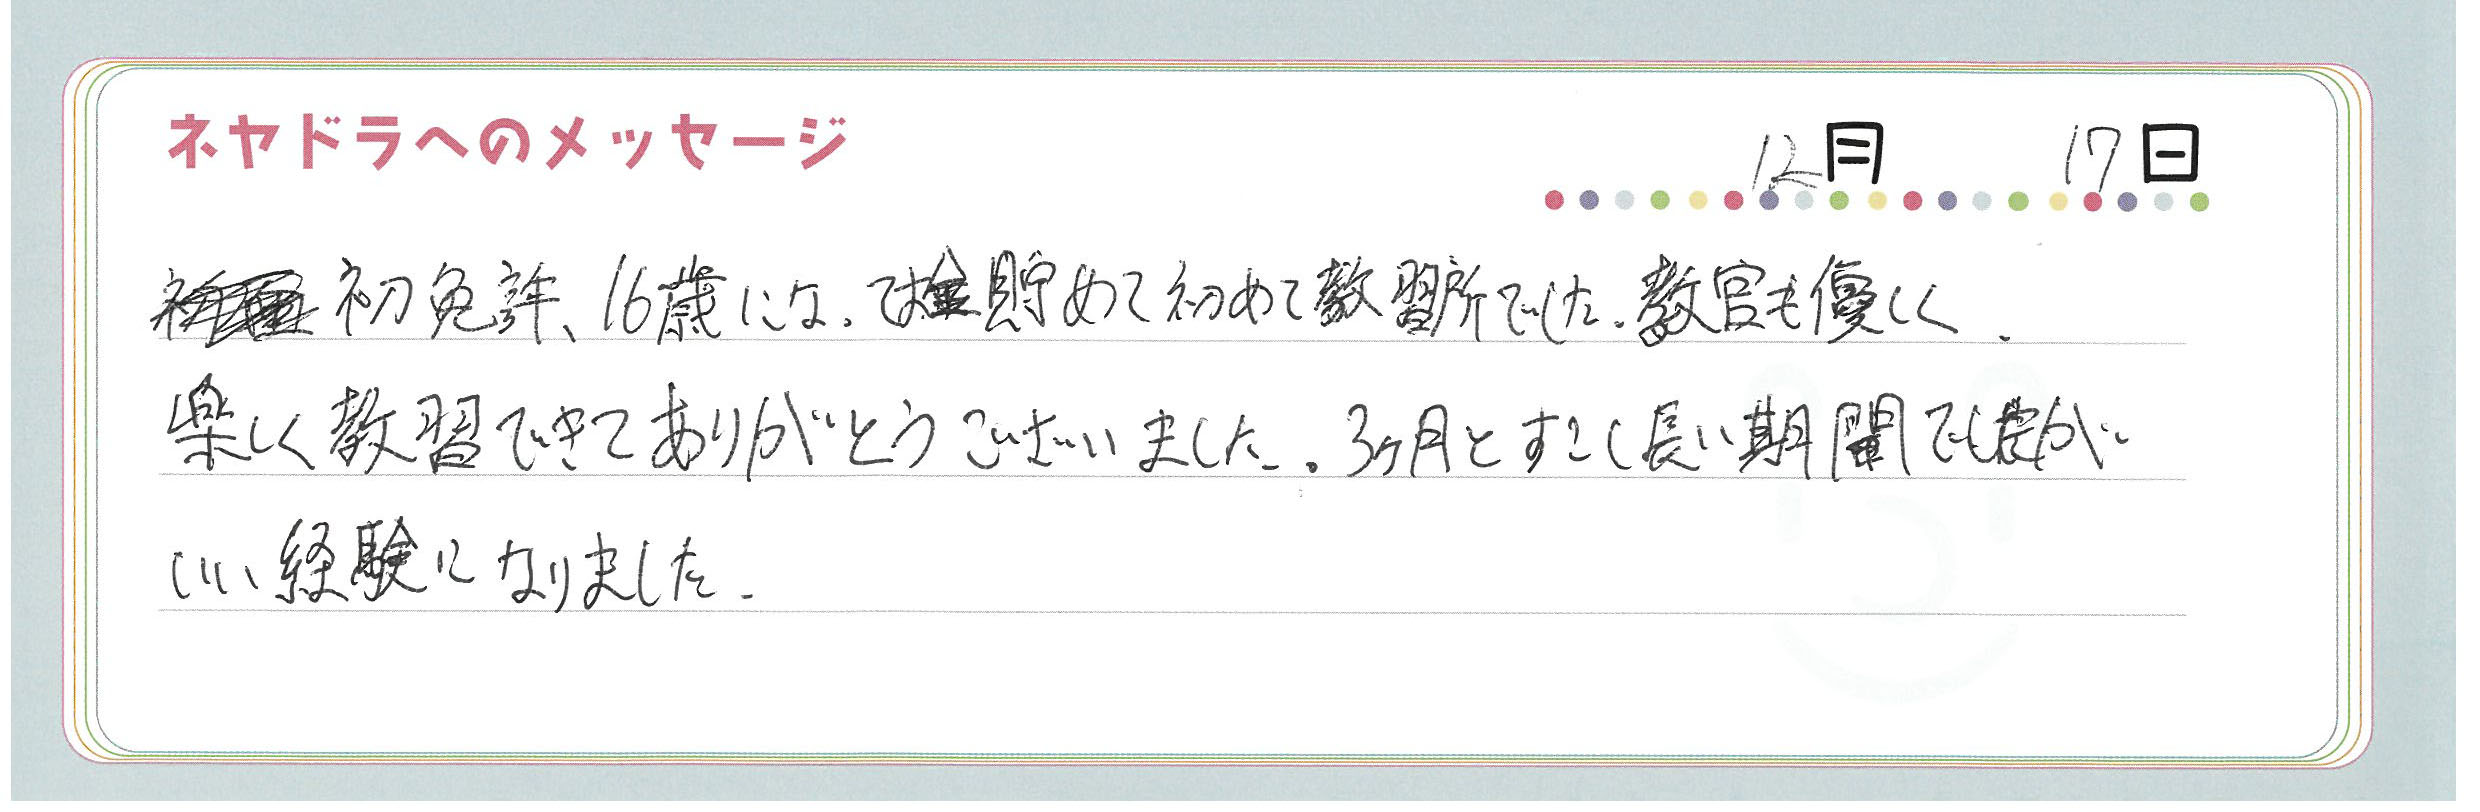 ネヤドラへのメッセージ
12月 17日
初免許、16歳になってお金貯めて初めて教習所でした。教官も優しく、
楽しく教習できてありがとうございました。3ヶ月とすこし長い期間でしたが
いい経験になりました。